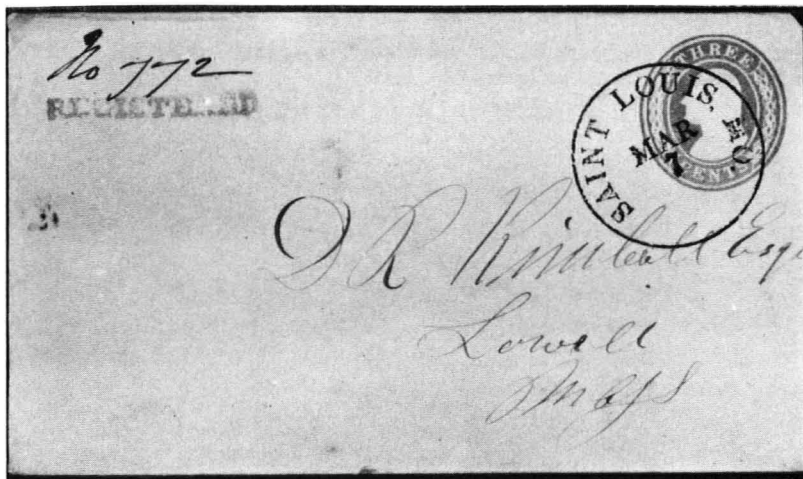 No 772
REGISTERED
THREE
CENTS
SAINT LOUIS, MO.
MAR
7
D R Kimball Esq
Lowell
Mass